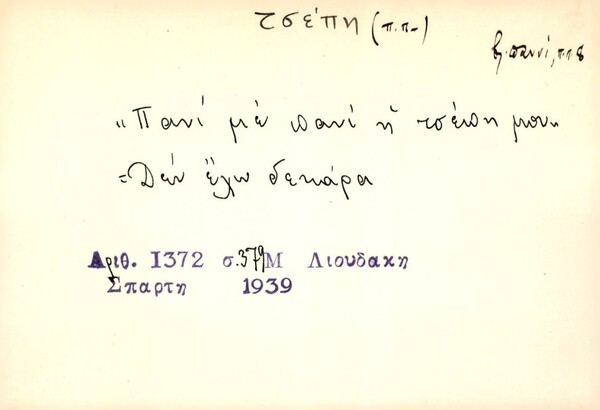 τσέπη (π.π.)
βλ. πανί, π.π 8
"Πανί μὲ πανί ἡ τσέπη μου"
=Δέν ἔχω δεκάρα
Αριθ. 1372 σ. 379 Μ Λιουδακη
Σπαρτη 1939